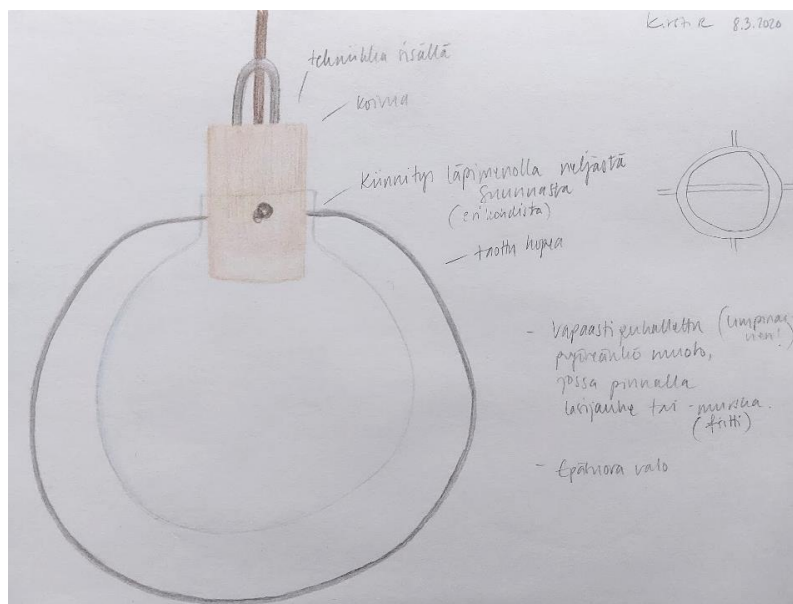 Kirsti R 8.3.2020
tekniikka sisällä
koivua
kiinnitys läpimenolla neljästä
suunnasta
(eri kohdista)
taottu hopea
- Vapaasti puhallettu
pyöreähkö muoto,
jossa pinnalla
lasijauhe tai -murska.
(fritti)
- Epäsuora valo